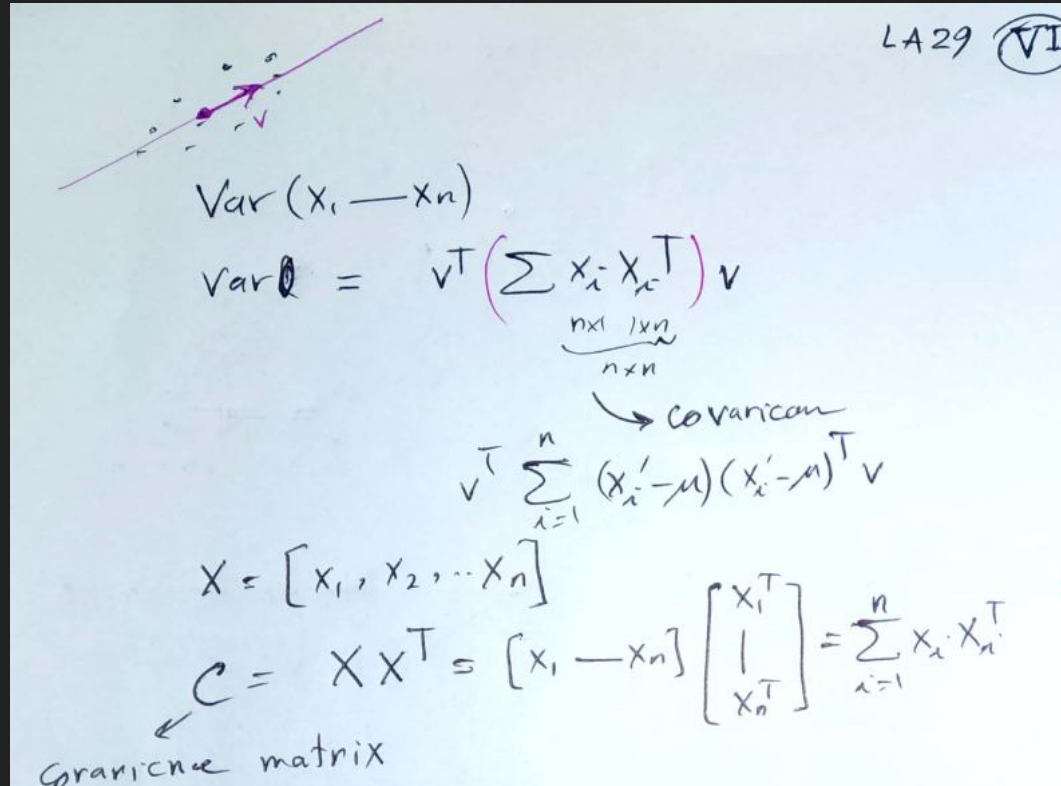 LA29 VI
v
Var (x₁ — xn)
Var = vᵀ (∑ xᵢ xᵢᵀ) v
n×1 1×n
n×n
→ covarican
vᵀ ∑ⁿᵢ₌₁ (xᵢ′-μ)(xᵢ′-μ)ᵀ v
X = [x₁, x₂, ..xn]
C = XXᵀ = [x₁ — xn] [x₁ᵀ | xnᵀ] = ∑ⁿᵢ₌₁ xᵢ xᵢᵀ
covaricnce matrix